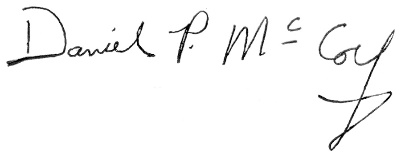 Daniel P. McCoy